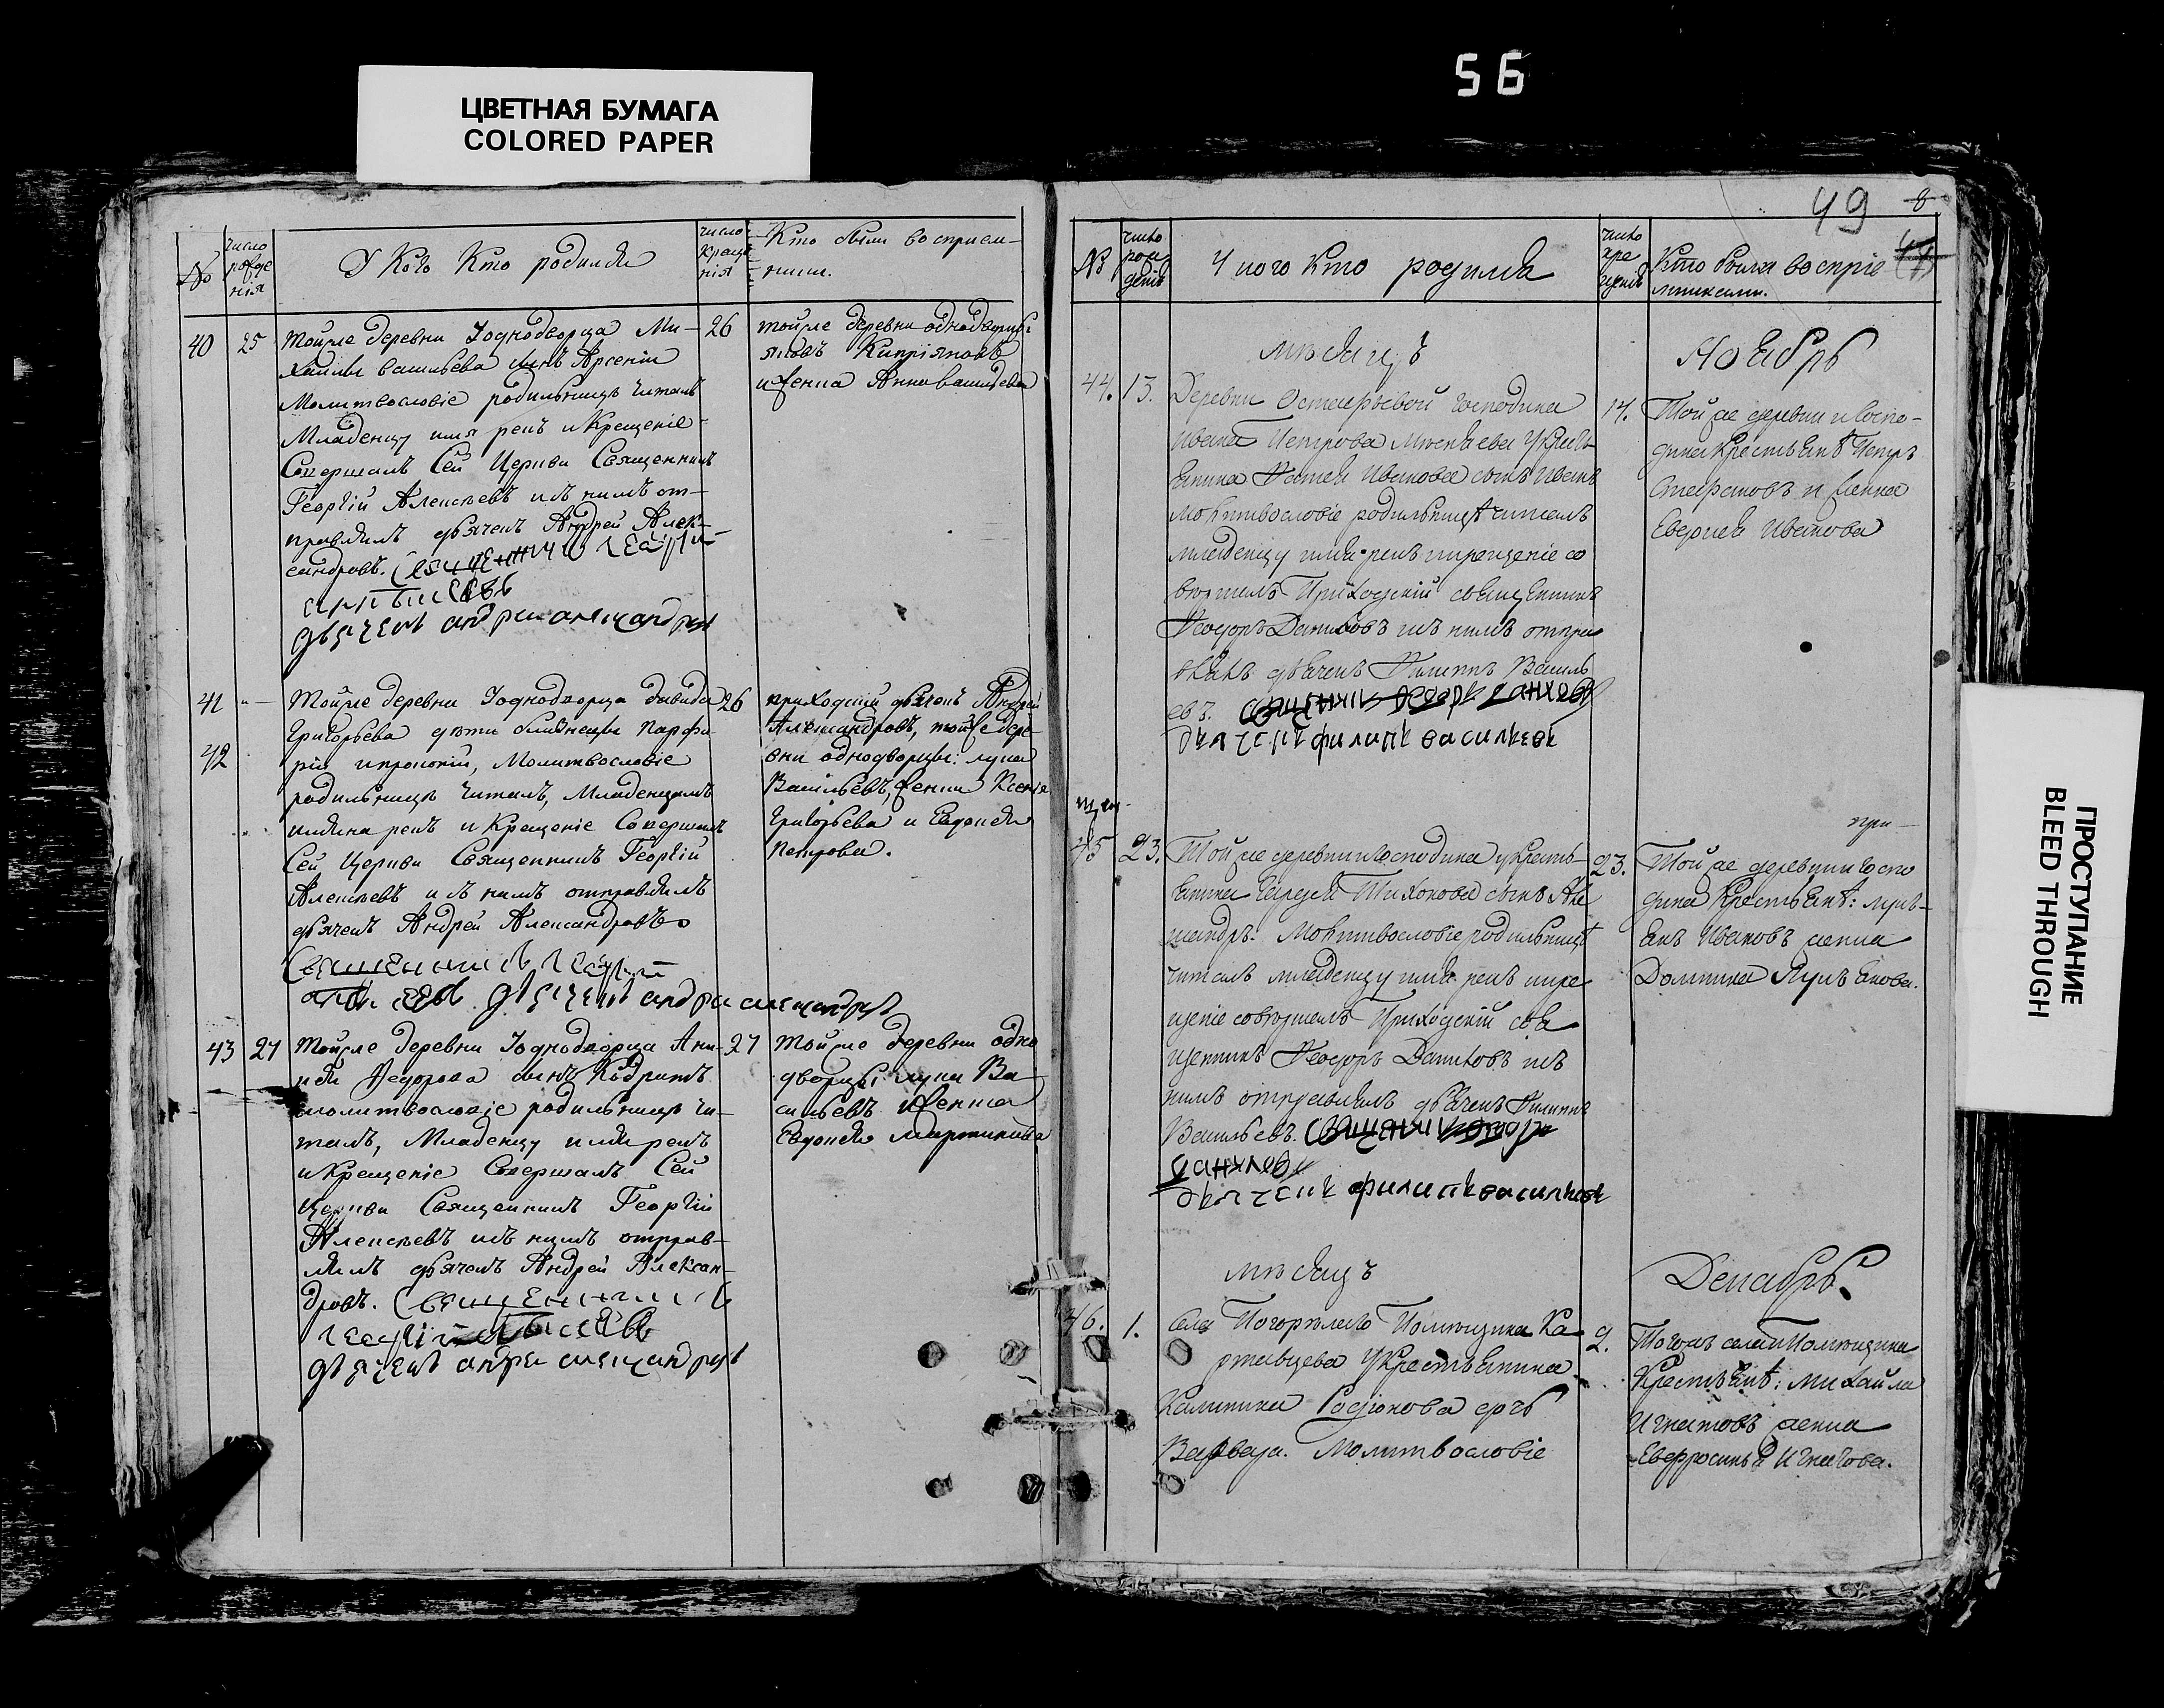 56
ЦВЕТНАЯ БУМАГА
COLORED PAPER
№
число рожде нія
У Кого Кто родился
число Креще нія
Кто были восприем-
ники.
40
25
тойже деревни У однодворца Ми-
хайлы васильева сынъ Арсеній
Молитвословіе родильницѣ читалъ
Младенцу имя рекъ и Крещеніе
Совершалъ Сей Церкви Священникъ
Георгій Алексѣевъ и съ нимъ от-
правлялъ дьячекъ Андрей Алек-
сандровъ. Священникъ Георгій
алексѣевъ
дьячекъ андреи александровъ
26
тойже деревни однодворцы:
Кипріяновъ
и женка Анна васильева
41
42
Тойже деревни У однодворца давида
Григорьева дѣти близнецы Парфи-
рій и прокопій, Молитвословіе
родильницѣ читалъ, Младенцамъ
имяна рекъ и Крещеніе Совершалъ
Сей Церкви Священникъ Георгій
Алексѣевъ и съ нимъ отправлялъ
дьячекъ Андрей Александровъ
Священникъ Георгій
алексѣевъ дьячекъ андреи александровъ
26
приходскій дьячекъ Андрей
Александровъ, тойже дере-
вни однодворцы: лука
Васильевъ, женки Ксенія
Григорьева и Евдокея
Петрова.
43
27
Тойже деревни У однодворца Аки-
Федорова сынъ Кодратъ
молитвословіе родильницѣ чи-
талъ, Младенцу имя рекъ
и Крещеніе Совершалъ Сей
Церкви Священникъ Георгій
Алексѣевъ и съ нимъ отправ-
лялъ дьячекъ Андрей Алексан-
дровъ. Священникъ
георгіи алексѣевъ
дьячекъ андреи александровъ
27
Тойже деревни одно
дворцы: луки Ва
сильевъ и женка
Евдокея мартинова
49
8
№
число рож дені
У кого кто родился
число кре щені
Кто были воспріе
мниками.
мѣсяцъ
Ноябрь
44.
13.
Деревни Остафьевой господина
Ивана Петрова укресть
янина Фатея Иванова сынъ Иванъ
молитвословіе родильницѣ читалъ
младенцу имя рекъ икрещеніе со
вершалъ Приходскій священникъ
Феодоръ Даниловъ исъ нимъ отпра
влялъ дьячекъ Филиппъ Василь
евъ. священникъ Феодоръ даниловъ
дьячекъ филипъ васильевъ
14.
Тойже деревни игоспо-
дина крестьянѣ Петръ
Стефановъ и женка
Евгенія Иванова
45
23.
Тойже деревни игосподина укресть-
янина Тихонова сынъ Але
ксандръ. Молитвословіе родильницѣ
читалъ младенцу имя рекъ икре
щеніе совершалъ Приходскій свя
щенникъ Феодоръ Даниловъ исъ
нимъ отправлялъ дьячекъ Филиппъ
Васильевъ. священникъ Феодоръ
даниловъ
дьячекъ филипъ васильевъ
23.
при-
Тойже деревни игоспо
дина Крестьянѣ: лукь-
янъ Ивановъ женка
Домника Лукьянова.
мѣсяцъ
Декабрь.
46.
1.
села Погорелова Помѣщика Ка
ртавцева Укрестьянина
Калинника Родіонова дочь
Варвара. Молитвословіе
2.
Тогожъ села иПомѣщика
Крестьянѣ: михайла
Игнатовъ женка
Евфросинья Игнатова.
ПРОСТУПАНИЕ
BLEED THROUGH